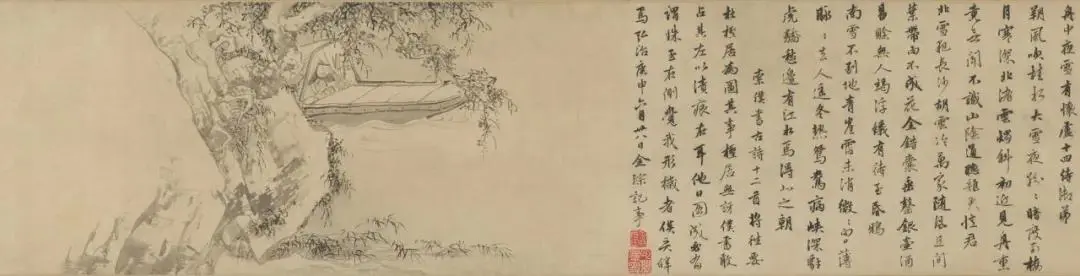 舟中夜雪有懷盧十四侍御弟
朔風吹桂水大雪夜紛〻暗度南樓
月寒深北渚雲燭斜初近見舟重
竟無聞不識山陰道聽雞更憶君
北雪犯長沙胡雲冷萬家隨風且間
葉帶雨不成花金錯囊垂罄銀壺酒
易賒無人竭浮蟻有待至昏鴉
南雪不到地青崖霑未消微〻向日薄
脈〻去人遙冬熱鴛鴦病峽深豺
虎驕愁邊有江水焉得北之朝
索僕書古詩十二首將往要
杜檉居為圖其事檉居無訝僕書敢
占其左以潰痕在耳他日圖成必有
謂珠玉在側覺我形穢者僕奚辭
焉弘治庚申六月廿八日金琮記事